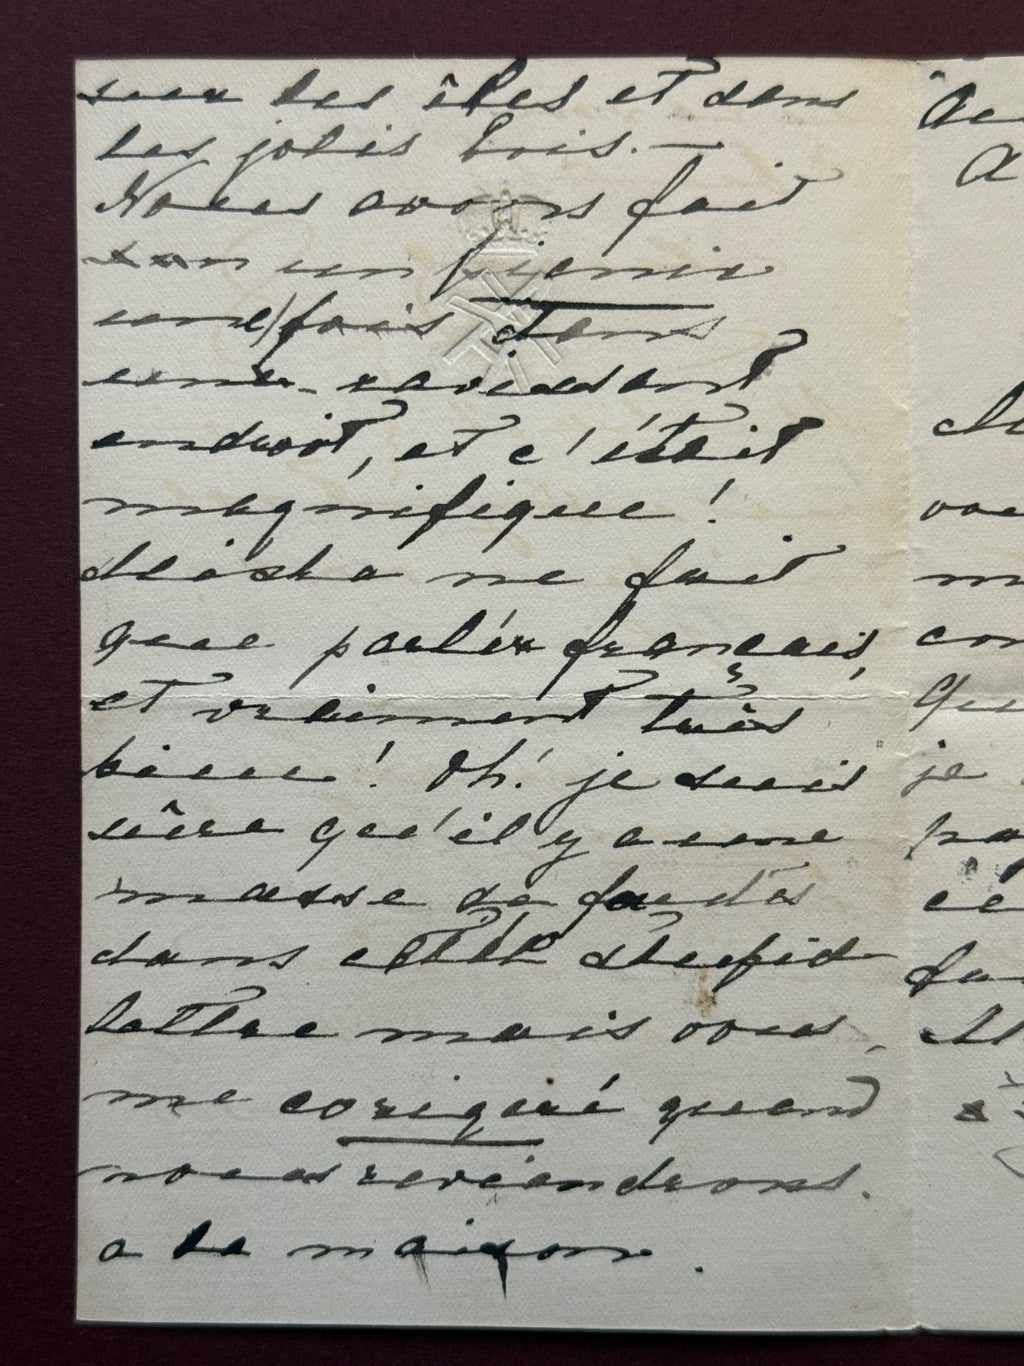 sur les îles et dans
les jolis bois. —
Nous avons fait
un picnic
une fois dans
une ravissant
endroit, et c'était
magnifique!
ne fait
que parlér français,
et vraiment très
bien! Oh! je suis
sûre qu'il y a une
masse de fautes
dans cette stupid
lettre mais vous,
me corigeré quand
nous reviendrons.
a la maison.
je